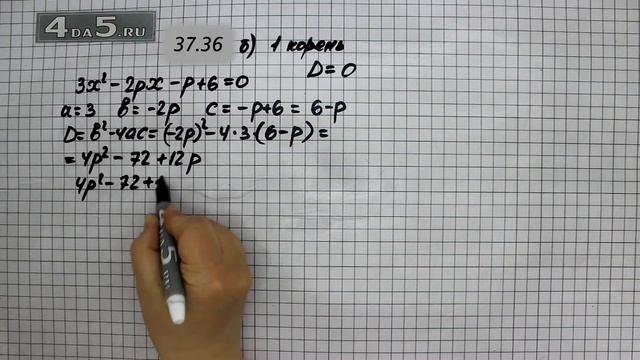 4DA5.RU
37.36 б) 1 корень
D = 0
3x² - 2px - p + 6 = 0
a = 3 b = -2p c = -p+6 = 6-p
D = b² - 4ac = (-2p)² - 4·3·(6-p) =
= 4p² - 72 + 12p
4p² - 72 +